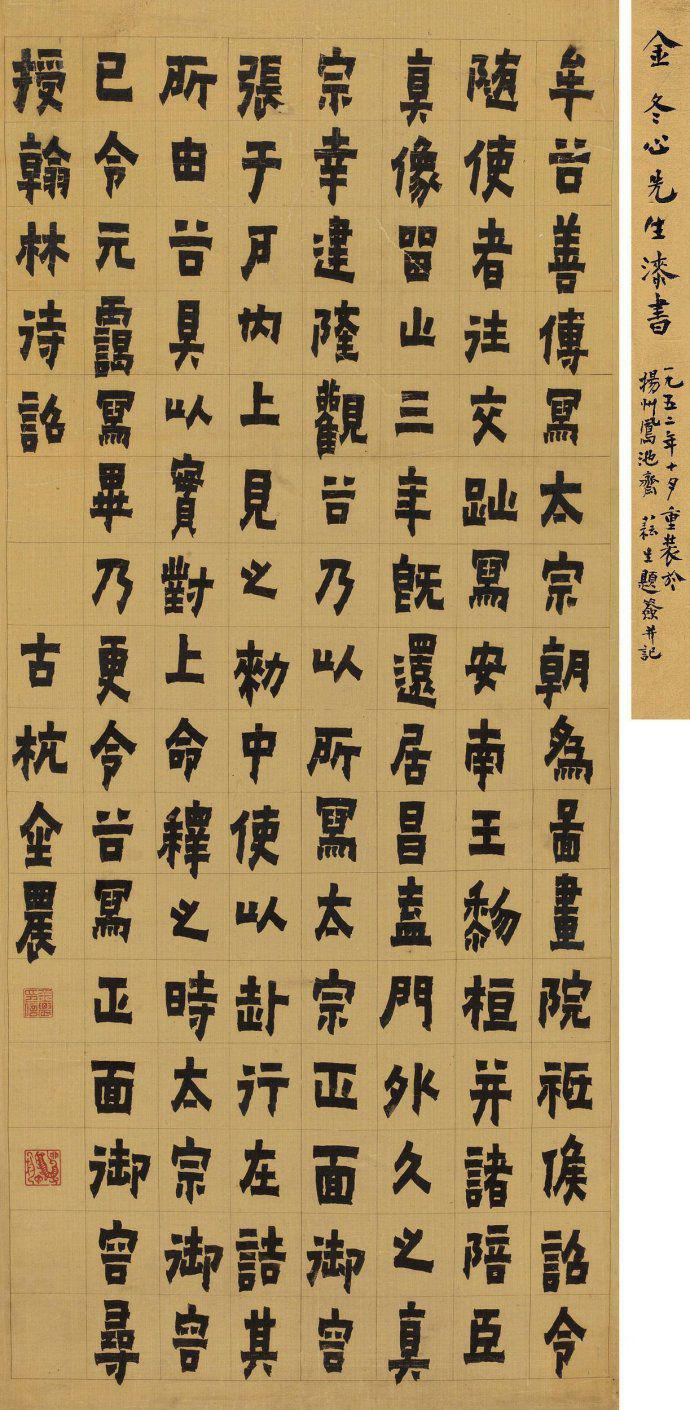 牟谷善傳寫太宗朝為啚畫院祗候詔令
随使者往交趾寫安南王黎桓并諸陪臣
真像留止三年既還居昌盍門外久之真
宗幸建隆觀谷乃以所寫太宗正面御容
張于戶內上見之勑中使以赴行在詰其
所由谷具以實對上命釋之時太宗御容
已令元靄寫畢乃更令谷寫正面御容尋
授翰林待詔
古杭金農
金農印信
金冬心先生漆書
一九五二年十月重裝於
揚州鳳池齋 生題簽并記